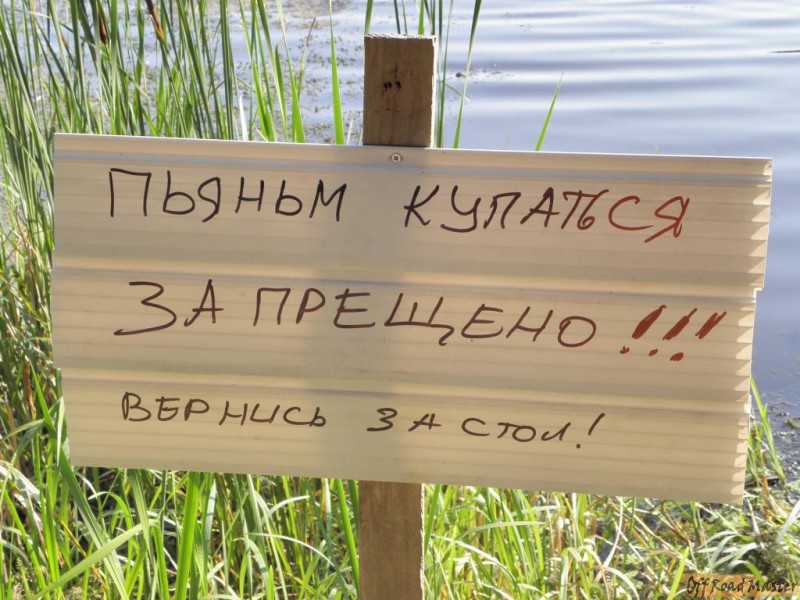 ПЬЯНЫМ КУПАТЬСЯ
ЗАПРЕЩЕНО!!!
ВЕРНИСЬ ЗА СТОЛ!
Off Road Master